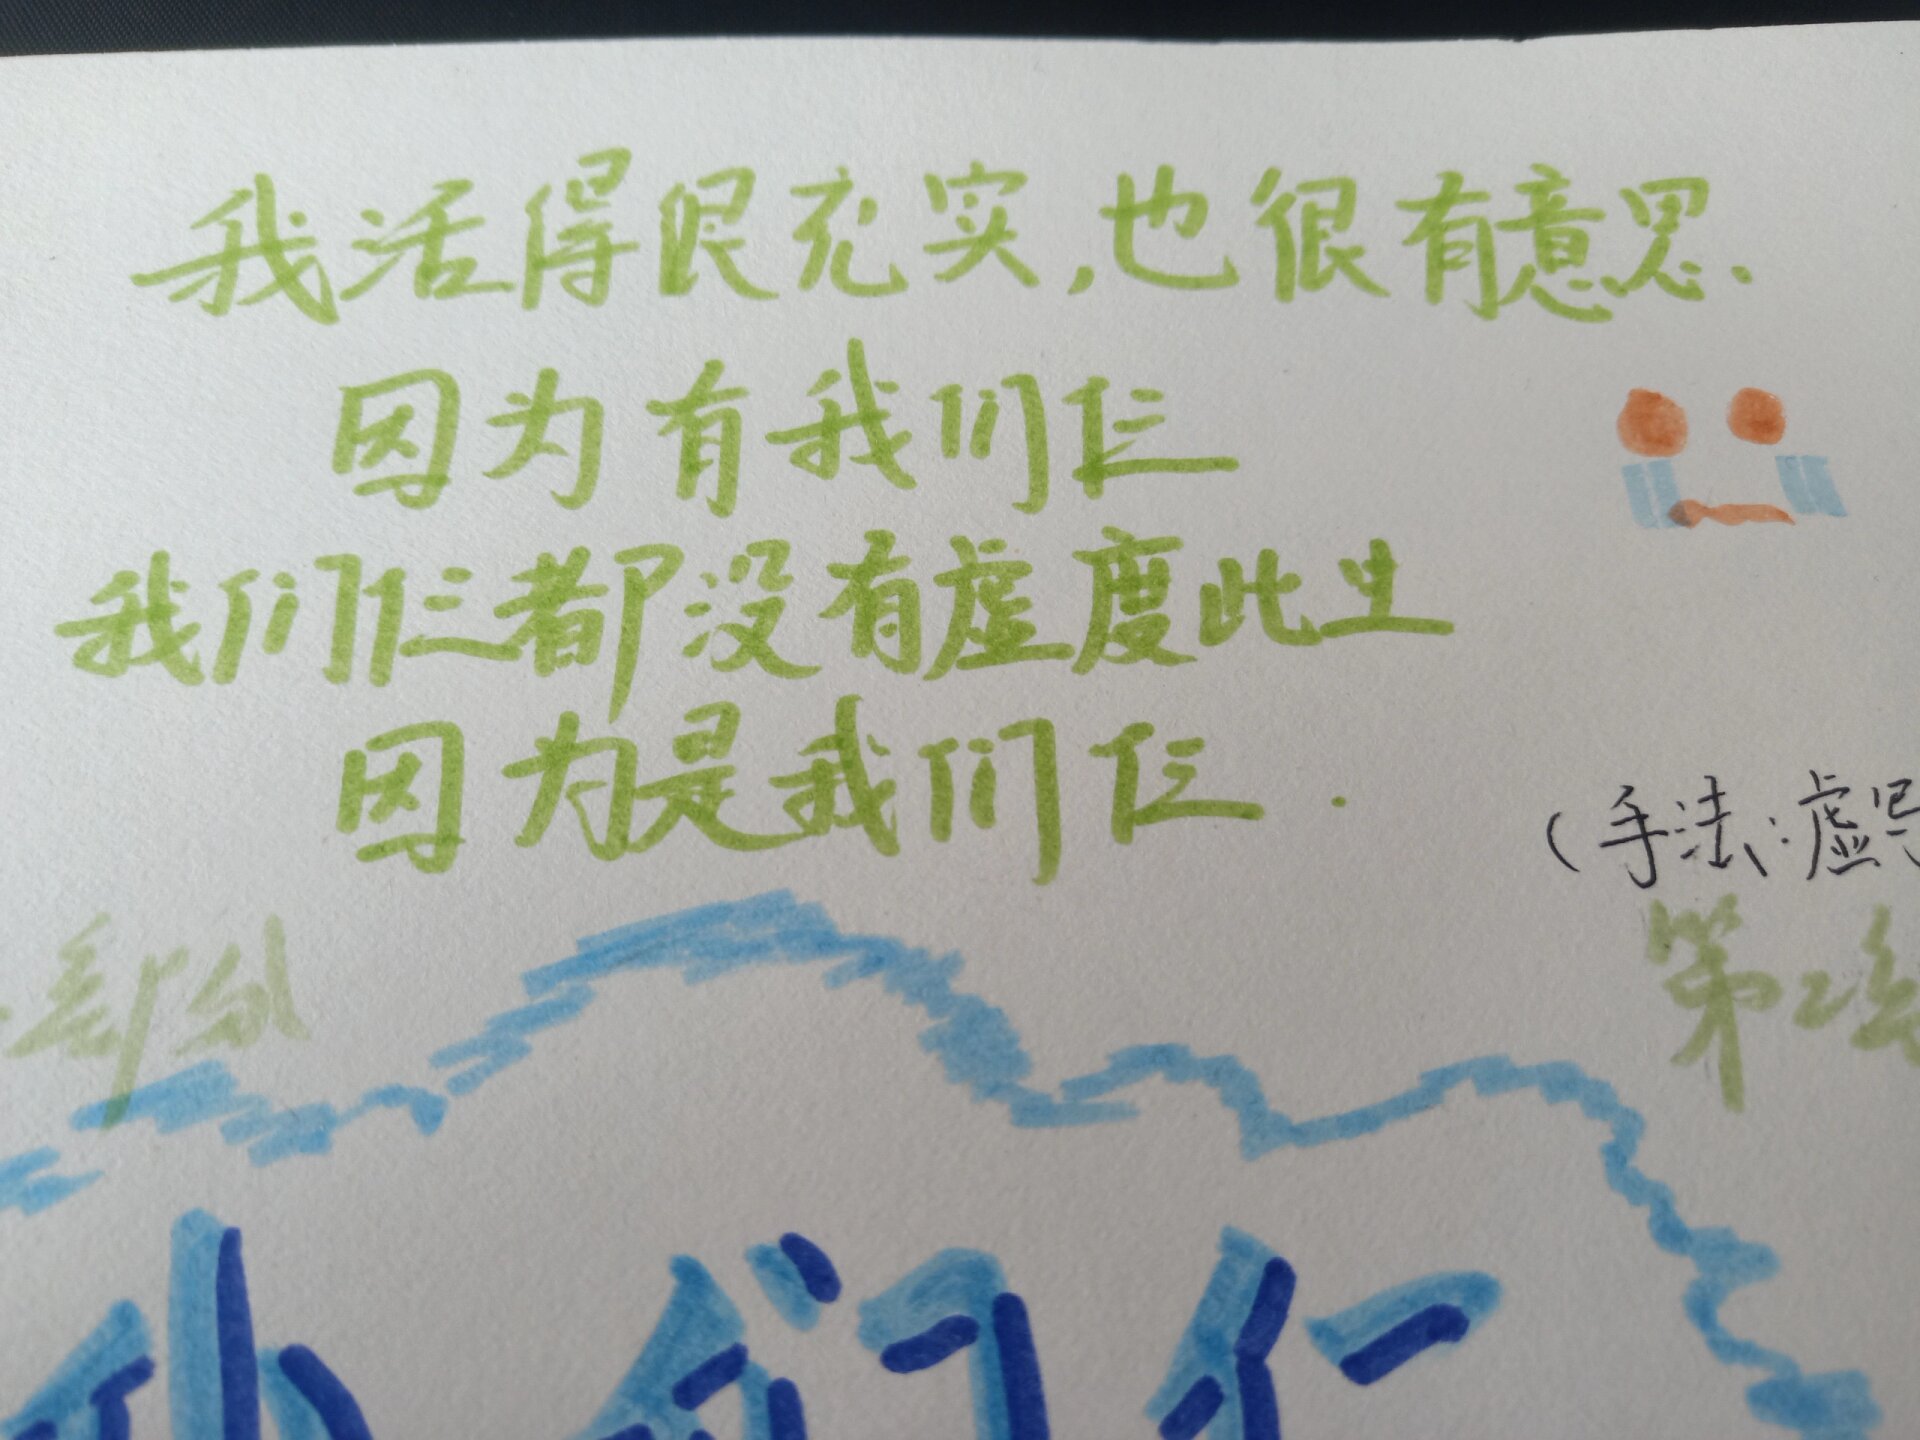 我活得很充实,也很有意思.
因为有我们仨
我们仨都没有虚度此生
因为是我们仨.
(手法:虚
部分
第二
我们仨